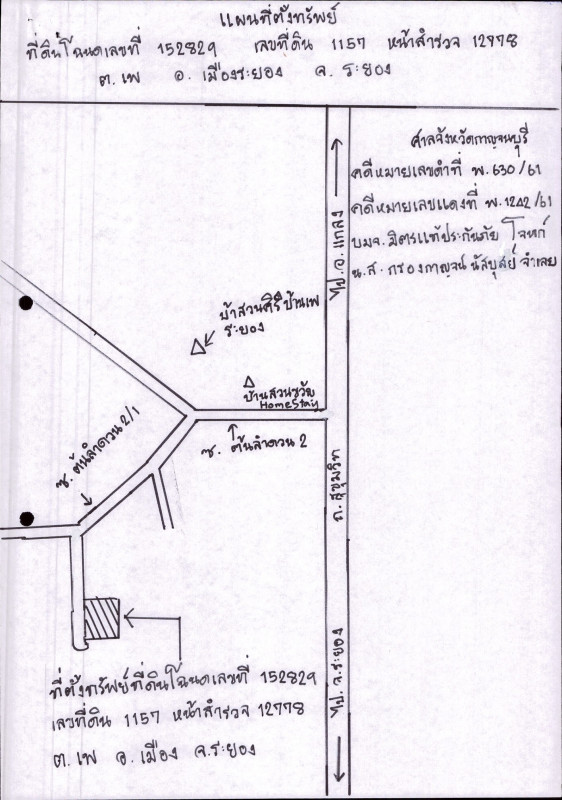 แผนที่ตั้งทรัพย์
ที่ดินโฉนดเลขที่ 152829 เลขที่ดิน 1157 หน้าสำรวจ 12778
ต. เพ อ. เมืองระยอง จ. ระยอง
ศาลจังหวัดกาญจนบุรี
คดีหมายเลขดำที่ พ. 630/61
คดีหมายเลขแดงที่ พ. 1242/61
บมจ. มิตรแท้ประกันภัย โจทก์
น.ส. กรองกาญจน์ จำเลย
ไป อ. แกลง
บ้าสวนศิริบ้านเพ
ระยอง
บ้านสวนขวัญ
Homestay
ซ. ต้นลำดวน 2/1
ซ. ต้นลำดวน 2
ถ. สุขุมวิท
ไป จ. ระยอง
ที่ตั้งทรัพย์ที่ดินโฉนดเลขที่ 152829
เลขที่ดิน 1157 หน้าสำรวจ 12778
ต. เพ อ. เมือง จ. ระยอง